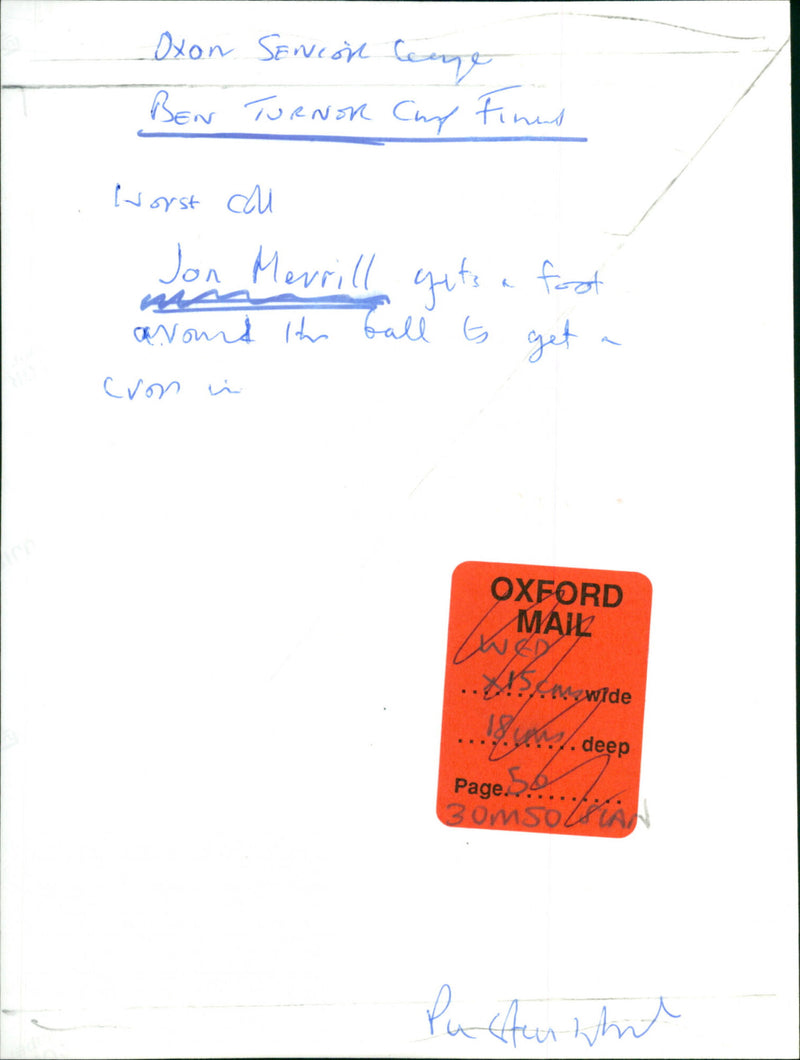 Oxon SENIOR League
BEN TURNOR Cup Final
Worst call
Jon Merrill gets a foot
around the ball to get a
cross in
OXFORD
MAIL
WED
x15cms wide
18cms deep
Page 50
30M50 SCAN